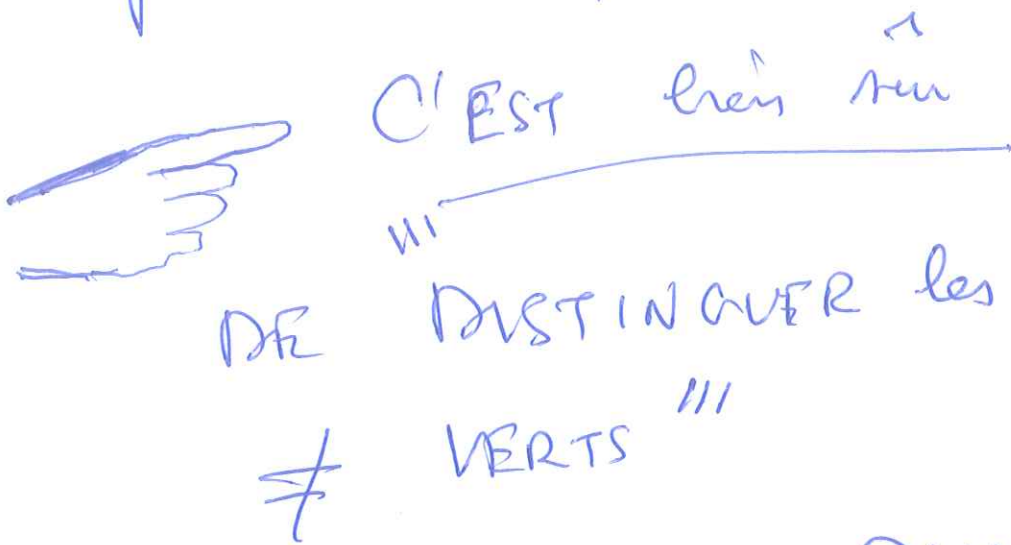 C'EST bien sûr
"'
DE DISTINGUER les
≠ VERTS "'